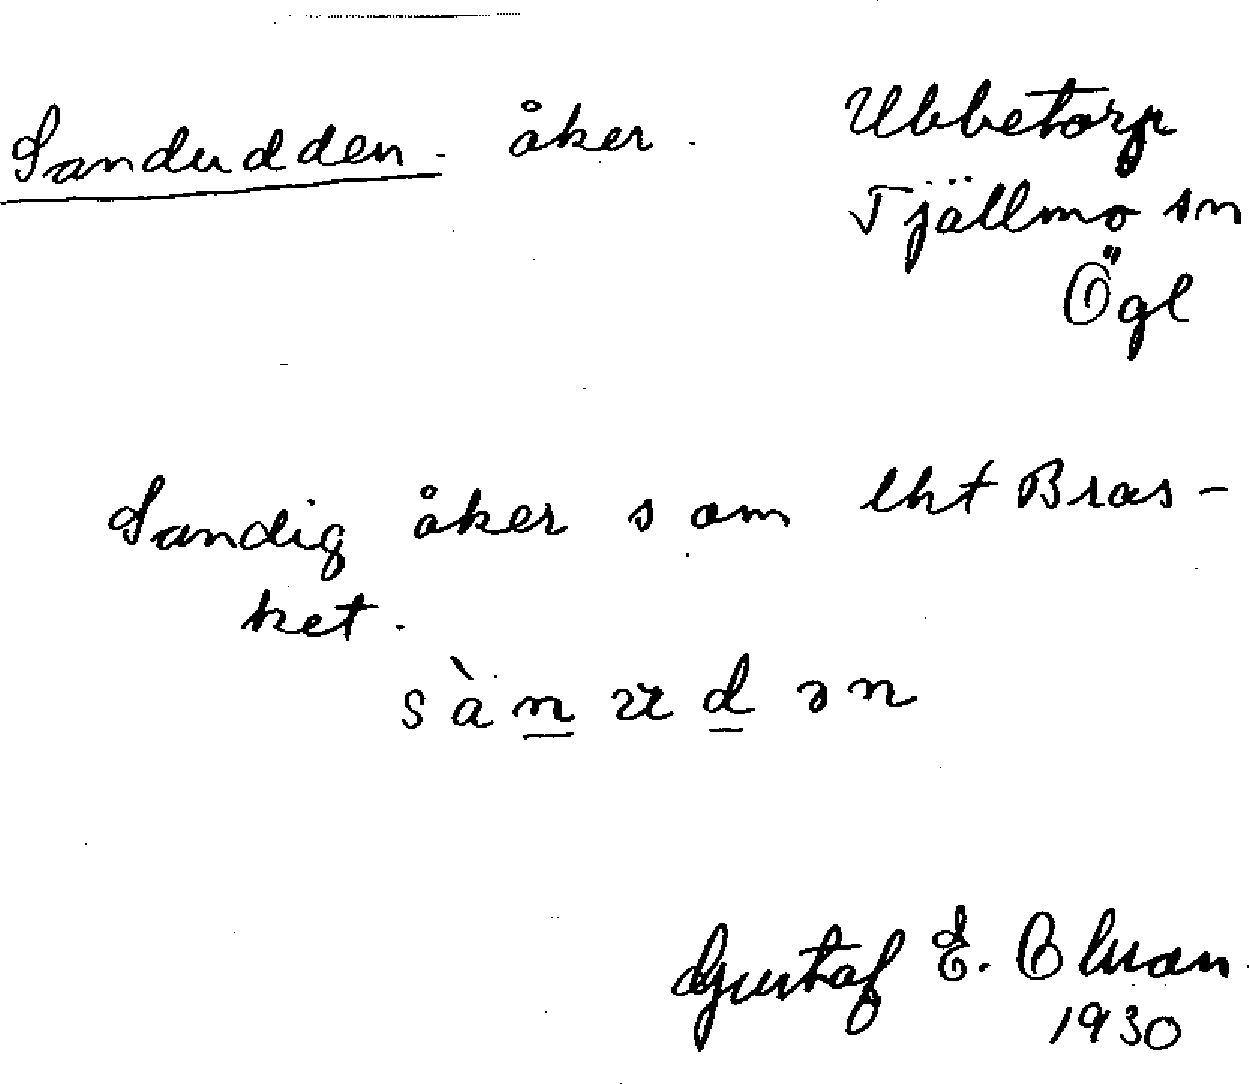 Sandudden. åker. Ubbetorp
Tjällmo sn
Ögl
Sandig åker som lht Bras-
ket.
sànudən
Gustaf E.
1930